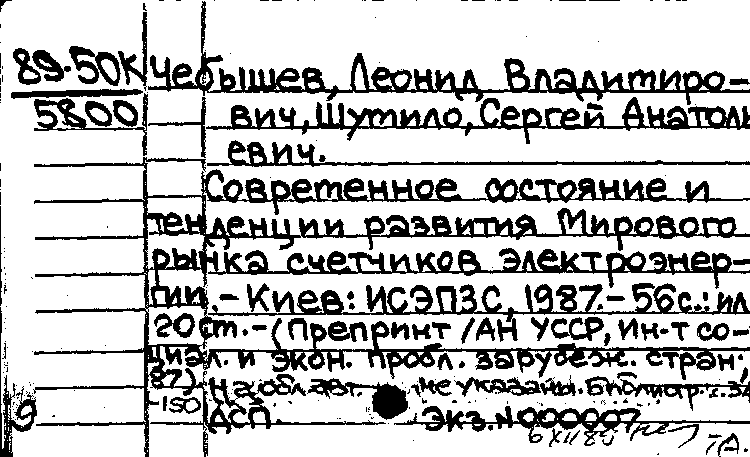 89-50К Чебышев, Леонид Владимиро-
5800 вич, Шутило, Сергей Анатоль
евич.
Современное состояние и
тенденции развития Мирового
рынка счетчиков электроэнер-
гии.- Киев: ИСЭПЗС, 1987.- 56с.: ил
20 ст.- (Препринт /АН УССР, Ин-т со-
циал. и экон. пробл. зарубеж. стран;
87). На обл. авт. не указаны. Библиогр.: с.
-ISO
9 ДСП. Экз. N 000007